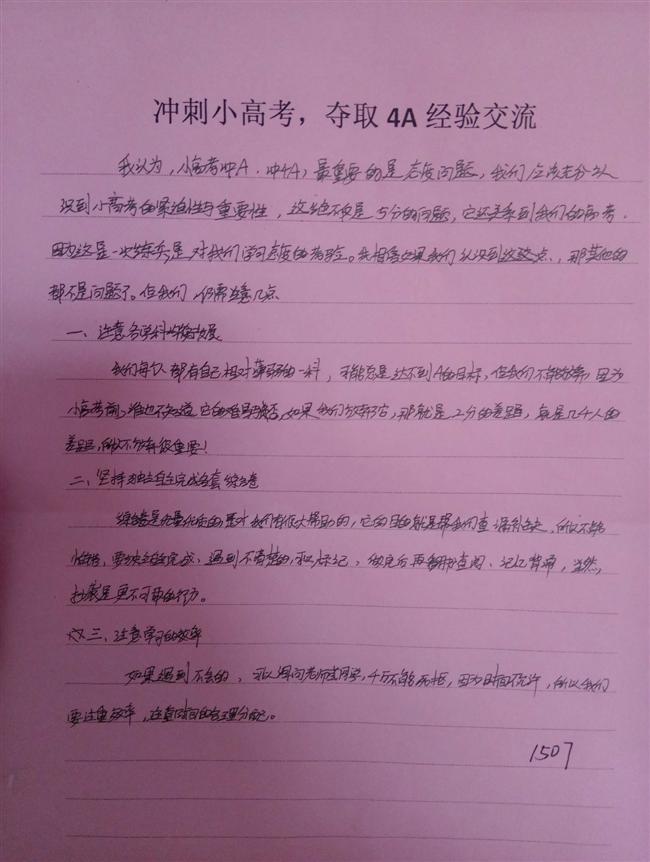 冲刺小高考，夺取4A经验交流
我认为，小高考冲A、冲4A，最重要的是态度问题，我们应该充分认
识到小高考的紧迫性与重要性，这绝不仅是5分的问题，它还关系到我们的高考.
因为这是一次练兵，是对我们学习态度的检验。我相信如果我们认识到这些点，那其他的
都不是问题了。但我们仍需注意几点
一、注意各学科均衡发展
我们每个人都有自己相对薄弱的一科，可能总是达不到A的目标，但我们不能放弃，因为
小高考前，谁也不知道它的难易，如果我们放弃了它，那就是2分的差距，真是几千人的
差距，所以不放弃很重要！
二、坚持独立自主完成每套综合卷
综合卷是对我们有很大帮助的，它的目的就是帮我们查漏补缺，所以不能
，要独立自主完成、遇到不清楚的，可以标记、做完后再翻书查阅、记忆背诵，当然，
抄袭是更不可取的行为。
三、注意学习的效率
如果遇到不会的，可以询问老师或同学，千万不能死抠，因为时间不允许，所以我们
要注重效率，注意时间的合理分配。
1507